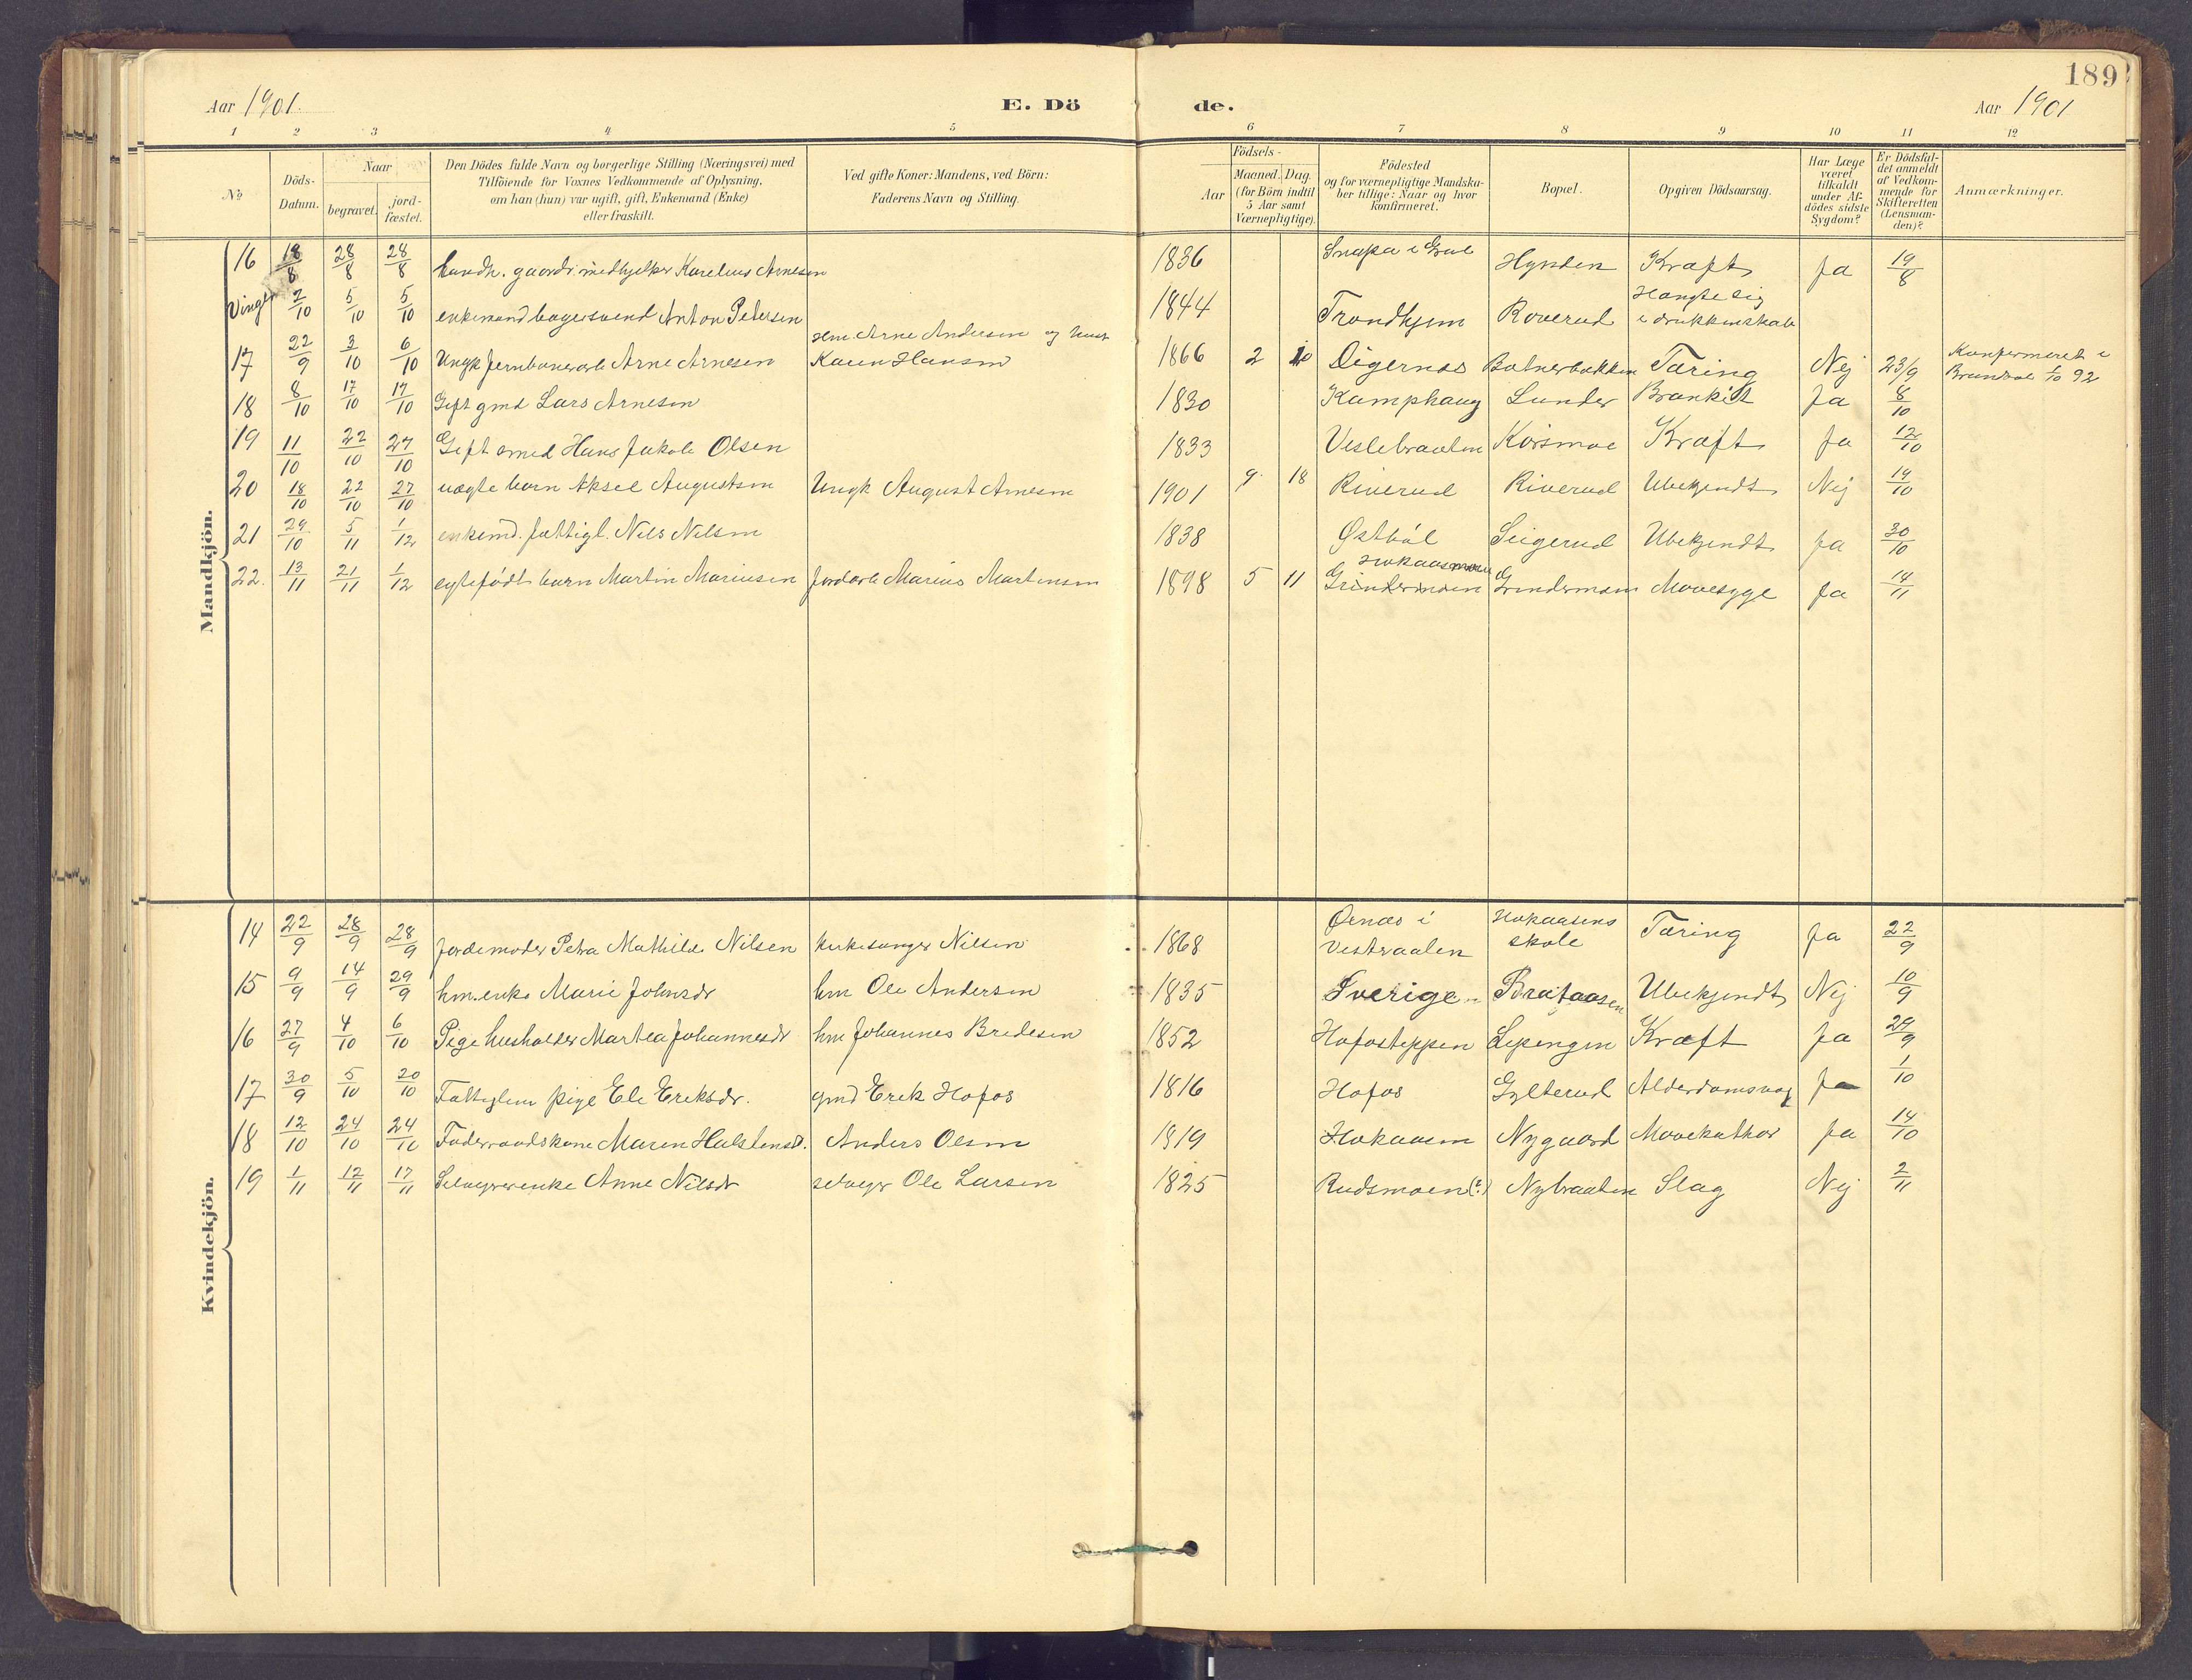 189
Aar 1901.
E. Döde.
Aar 1901
1 2 3 4 5 6 7 8 9 10 11 12
№
Döds-Datum.
Naar
begravet.
jord-fæstet.
Den Dödes fulde Navn og borgerlige Stilling (Næringsvei) med
Tilföiende for Voxnes Vedkommende af Oplysning,
om han (hun) var ugift, gift, Enkemand (Enke)
eller fraskilt.
Ved gifte Koner: Mandens, ved Börn:
Faderens Navn og Stilling.
Födsels-
Aar
Maaned. Dag.
(for Börn indtil
5 Aar samt
Værnepligtige).
Födested
og for værnepligtige Mandska-
ber tillige: Naar og hvor
konfirmeret.
Bopæl.
Opgiven Dödsaarsag.
Har Læge
været
tilkaldt
under Af-
dödes sidste
Sygdom?
Er Dödsfal-
det anmeldt
af Vedkom-
mende for
Skifteretten
(Lensman-
den)?
Anmærkninger.
Mandkjön.
16 18/8 28/8 28/8 handh. gaardr. medhjelper Karelius Arnesen 1836 i Grue Hynden Kræft ja 19/8
Vinger 2/10 5/10 5/10 enkemand bagersvend Anton Petersen 1844 Trondhjem Roverud Hængte sig
i drukkenskab
17 22/9 3/10 6/10 Ungk jernbanearb Arne Arnesen Hm. Arne Andersen og hust
Karen Hansen 1866 2 10 Digernes Botnerbakken Tæring Nej 23/9 Konfirmeret i
Brandval 2/10 92
18 8/10 17/10 17/10 Gift gmd Lars Arnesen 1830 Kamphaug Lunder Bronkit Ja 8/10
19 11/10 22/10 27/10 Gift smed Hans Jakob Olsen 1833 Veslebraaten Korsmoe Kræft Ja 12/10
20 18/10 22/10 27/10 uægte barn Aksel Augustsen Ungk August Arnesen 1901 9 18 Riverud Riverud Ubekjendt Nej 19/10
21 29/10 5/11 1/12 enkemd. fattigl. Nils Nilsen 1838 Østból Seigerud Ubekjendt ja 30/10
22. 13/11 21/11 1/12 egtefødt barn Martin Mariusen Jordarb Marius Martinsen 1898 5 11 Hokaasmoen
Grindermoen Grindermoen Mavesyge Ja 14/11
Kvindekjön.
14 22/9 28/9 28/9 Jordemoder Petra Mathilde Nilsen kirkesanger Nilsen 1868 Øsnes i
Vestraalen Hokaasens
skole Tæring ja 22/9
15 9/9 14/9 29/9 hm.enke Marie Johnsdr hm Ole Andersen 1835 Sverige Brataasen Ubekjendt Nej 10/9
16 27/9 4/10 6/10 Pige husholder Martea Johannesdr hm Johannes Bredesen 1852 Hofosteppen Lepengen Kræft ja 29/9
17 30/9 5/10 20/10 Fattiglem pige Eli Eriksdr. gmd Erik Hofos 1816 Hofos Gylterud Alderdomsvag ja 1/10
18 12/10 24/10 24/10 Føderaadskone Maren Halstensd. Anders Olsen 1819 Hokaasen Nygaard Mavekathar ja 14/10
19 1/11 12/11 17/11 Selveyerenke Anne Nilsdr selveyr Ole Larsen 1825 Rudsmoen (?) Nybraaten Slag Nej 2/11